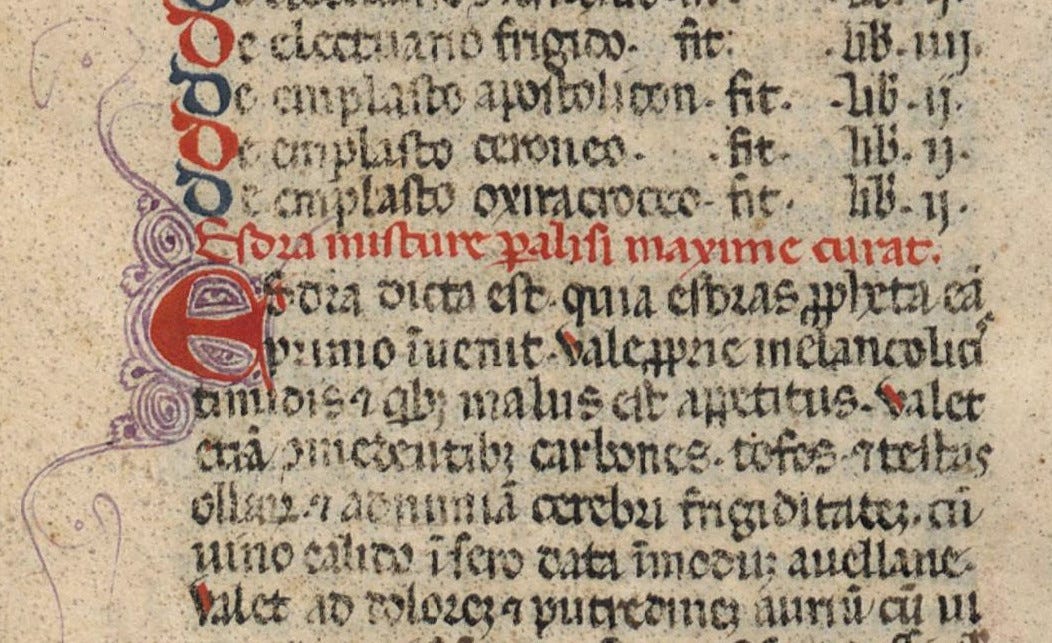 De electuario frigido. fit: . lib. iiij.
De emplasto apostolicon. fit. . lib. ij.
De emplasto ceroneo. . fit. lib. ij.
De emplasto oxiracroceo. fit. lib. ij.
Esdra misture p̱alisi maxime curat.
Esdra dicta est. quia esdras ꝓpheta eā
primo īuenit. Valet ꝓprie melancolicis
timidis ⁊ qͥbꝫ malus est apetitus. Valet
etiā comedentibꝫ carbones. tofos. ⁊ testas
ollaꝝ. ⁊ ad nimiā cerebri frigiditateꝫ. cū
uino calido ī sero data ī moduꝫ auellane.
Valet ad doloreꝫ ⁊ putredineꝫ auriū cū ui